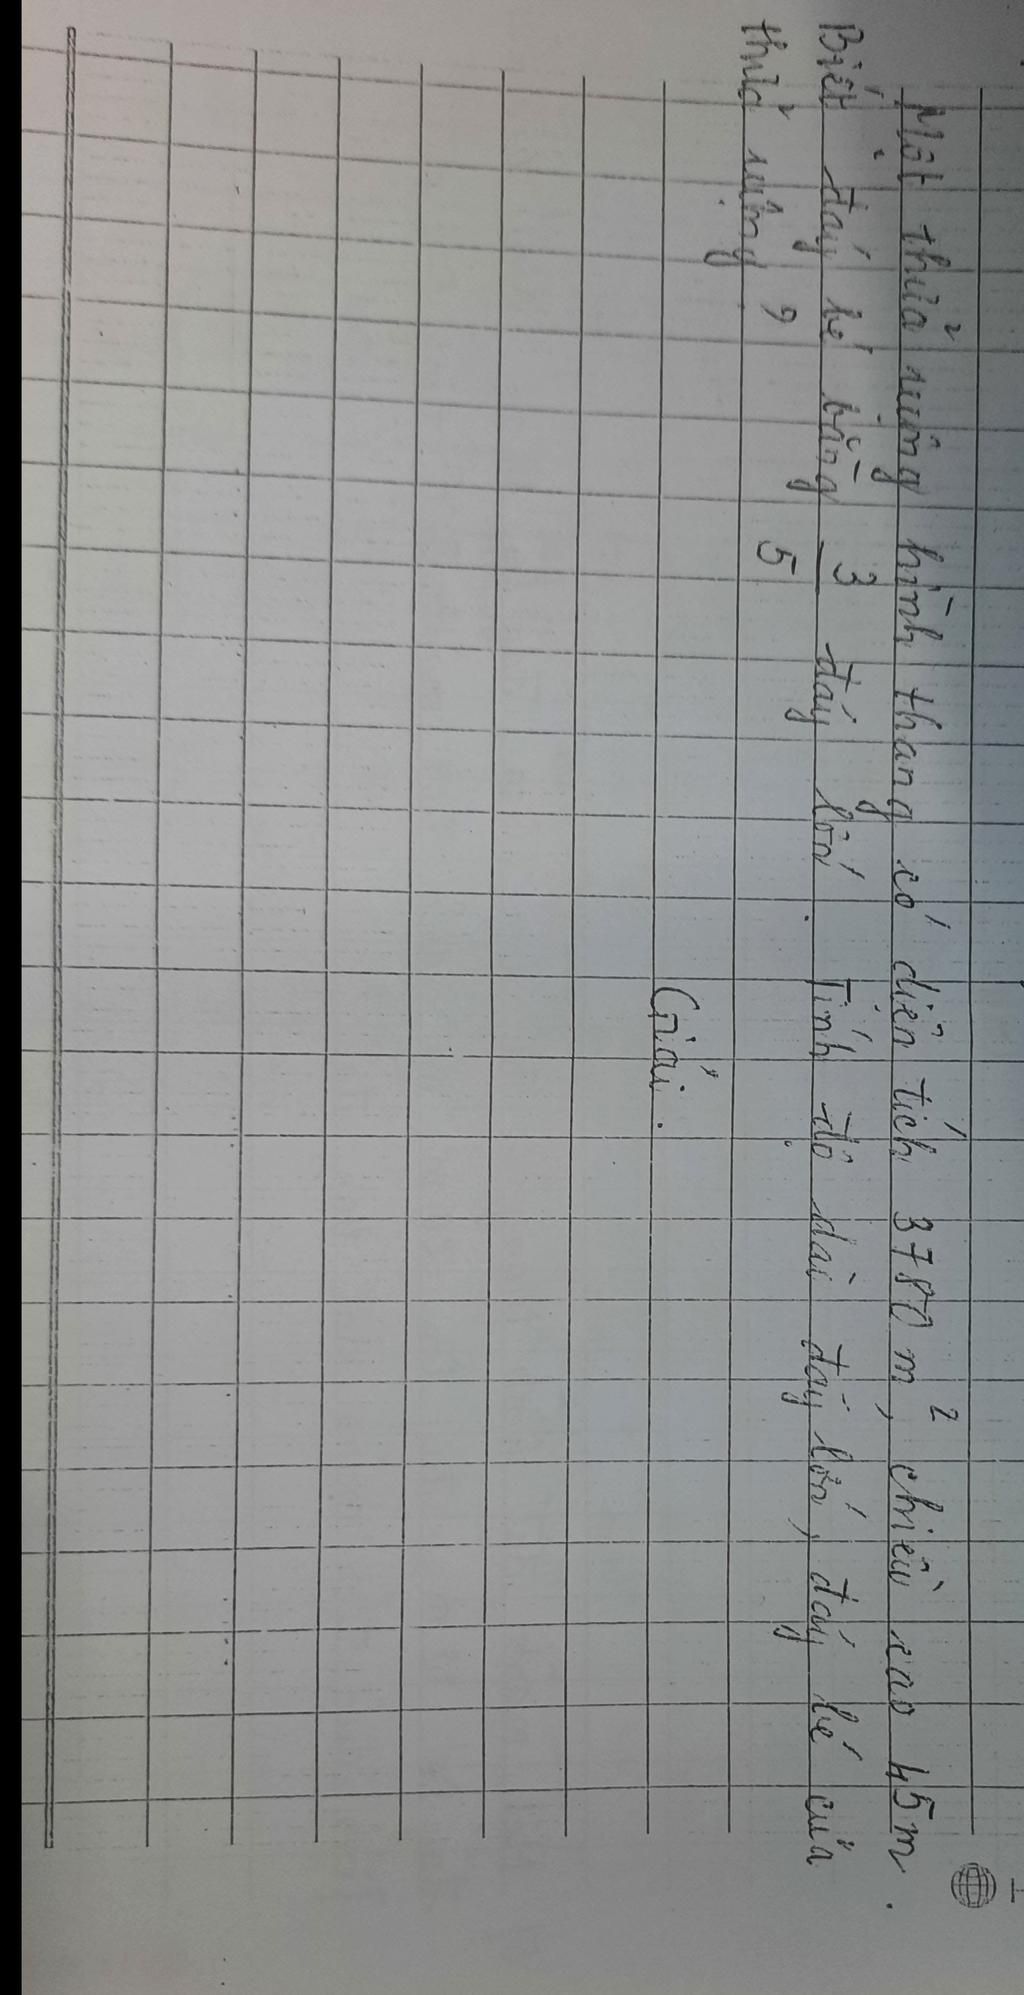 Một thửa ruộng hình thang có diện tích 3780 m², chiều cao 45m.
Biết đáy bé bằng 3/5 đáy lớn. Tính độ dài đáy lớn, đáy bé của
thửa ruộng ?
Giải.